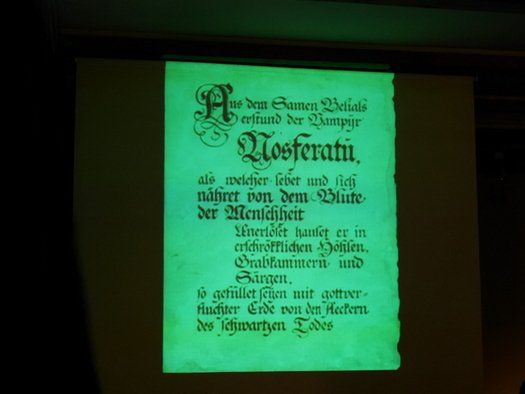 Aus dem Samen Belials
erstund der Vampyr
Nosferatu,
als welcher lebet und sich
nähret von dem Blute
der Menschheit
Unerlöset hauset er in
erschrökklichen Höhlen,
Grabkammern und
Särgen,
so gefüllet seyen mit gottver-
fluchter Erde von den Äckern
des schwartzen Todes